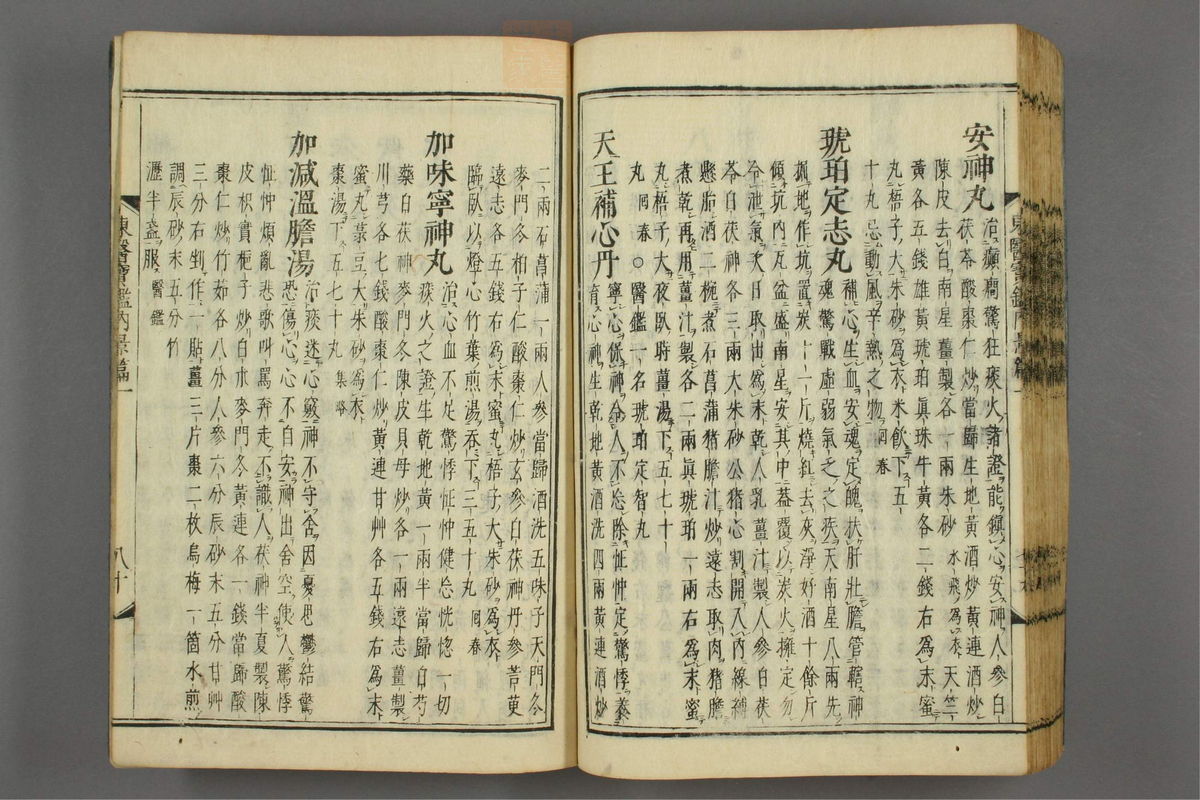 安神丸
治癲癎驚狂痰火諸證能鎭心安神人參白
茯苓酸棗仁炒當歸生地黃酒炒黃連酒炒
陳皮去白南星薑製各一兩朱砂水飛爲衣天竺
黃各五錢雄黃琥珀眞珠牛黃各二錢右爲末蜜
丸梧子大朱砂爲衣米飮下五
十丸忌動風辛熱之物回春
琥珀定志丸
補心生血安魂定魄扶肝壯膽管轄神
魂驚戰虛弱氣乏之疾天南星八兩先
掘地作坑置炭十一斤燒紅去灰淨好酒十餘斤
傾坑內瓦盆盛南星安其中蓋覆以炭火擁定勿
令泄氣次日取出爲末乾人乳薑汁製人參白茯
苓白茯神各三兩大朱砂公猪心割開入內線縛
懸胎酒二椀煮石菖蒲猪膽汁炒遠志取肉猪膽
煮乾再用薑汁製各二兩眞琥珀一兩右爲末蜜
丸梧子大夜臥時薑湯下五七十
丸回春○醫鑑一名琥珀定智丸
天王補心丹
寧心保神令人不忘除怔忡定驚悸養
育心神生乾地黃酒洗四兩黃連酒炒
二兩石菖蒲一兩人參當歸酒洗五味子天門冬
麥門冬柏子仁酸棗仁炒玄參白茯神丹參苦莄
遠志各五錢右爲末蜜丸梧子大朱砂爲衣
臨臥以燈心竹葉煎湯呑下三五十丸回春
加味寧神丸
治心血不足驚悸怔忡健忘恍惚一切
痰火之證生乾地黃一兩半當歸白芍
藥白茯神麥門冬陳皮貝母炒各一兩遠志薑製
川芎各七錢酸棗仁炒黃連甘艸各五錢右爲末
蜜丸菉豆大朱砂爲衣
棗湯下五七十丸集略
加減溫膽湯
治痰迷心竅神不守舍因憂思鬱結驚
恐傷心心不自安神出舍空使人驚悸
怔忡煩亂悲歌叫罵奔走不識人茯神半夏製陳
皮枳實梔子炒白朮麥門冬黃連各一錢當歸酸
棗仁炒竹茹各八分人參六分辰砂末五分甘艸
三分右剉作一貼薑三片棗二枚烏梅一箇水煎
調辰砂末五分竹
瀝半盞服醫鑑
東醫寶鑑內景篇一
八十